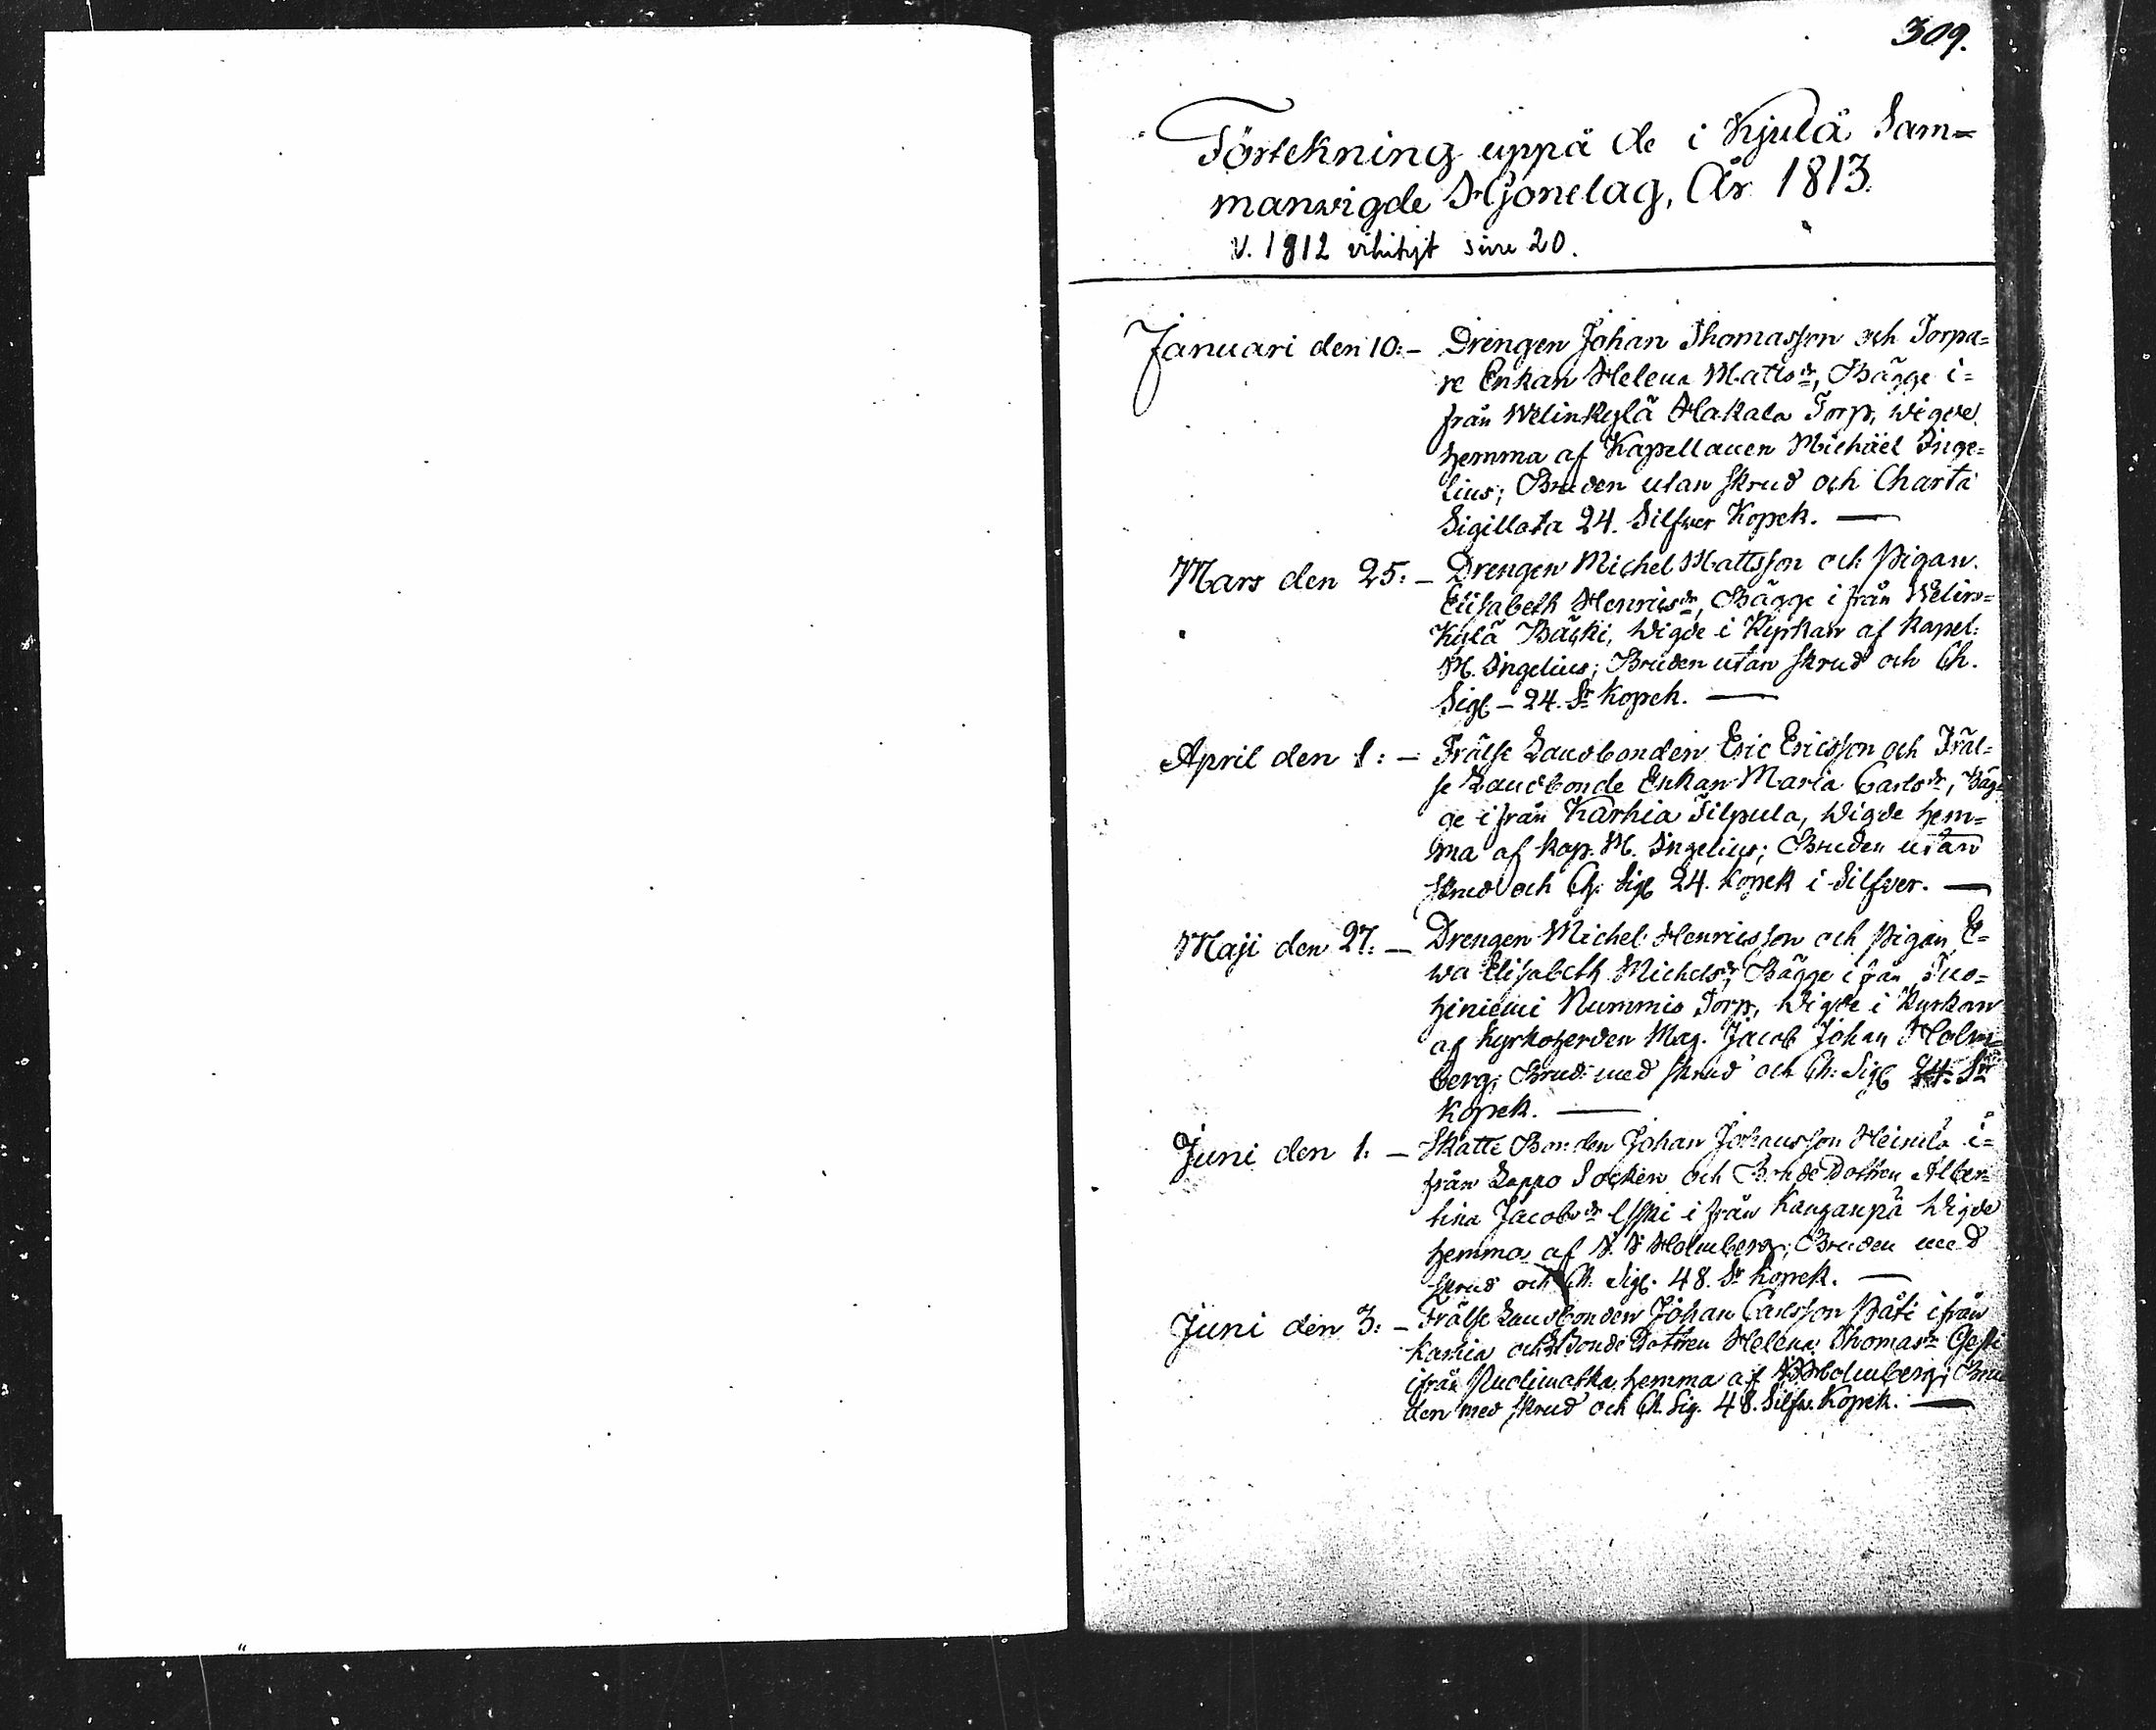 309.
Förtekning uppå de i Kjulå Sam=
manvigde Hjonelag, År 1813.
V. 1812 vihityt sivu 20.
Januari den 10: – Drengen Johan Thomasson och Torpa=
re Enkan Helena Mattsdr, Bägge i=
från Welinkylä Hakala Torp, wigde
hemma af Kapellanen Michäel Inge=
lius; Bruden utan skrud och Charta
Sigillata 24. Silfwer Kopek. —
Mars den 25: – Drengen Michel Mattsson och Pigan
Elisabeth Henricsdr, Bägge ifrån Welin=
Kylä Bäcki, Wigde i Kyrkan af Kapel:
M. Ingelius; Bruden utan skrud och Ch.
Sigl – 24. Sr Kopek. —
April den 1: – Frälse Landbonden Eric Ericsson och Fräl=
se Landbonde Enkan Maria Carlsdr, Bäg=
ge ifrån Karhia Filpula, Wigde hem=
ma af Kap. M. Ingelius; Bruden utan
skrud och Ch: Sigl 24. Kopek i Silfver. —
Maji den 27: – Drengen Michel Henricsson och Pigan E=
wa Elisabeth Michelsdr, Bägge ifrån Tuo=
hiniemi Nummis Torp, Wigde i Kyrkan
af Kyrkoherden Mag. Jacob Johan Holm=
berg; Brud: med skrud och Ch: Sigl 24. Sr
Kopek. —
Juni den 1. – Skatte Bonden Johan Johansson Heinilä i=
från Lappo Socken och Bonde Dottren Alber=
tina Jacobsdr i från Kauganpä Wigde
hemma af J. J Holmberg; Bruden med
skrud och Ch. Sigl. 48. Sr Kopek. —
Juni den 3: – Frälse Landbonden Johan Carlsson Påti ifrån
Karhia och Bonde Dottren Helena Thomasdr
ifrån hemma af JJ Holmberg; Bru
den med skrud och Ch. Sig. 48. Silfw. Kopek. —